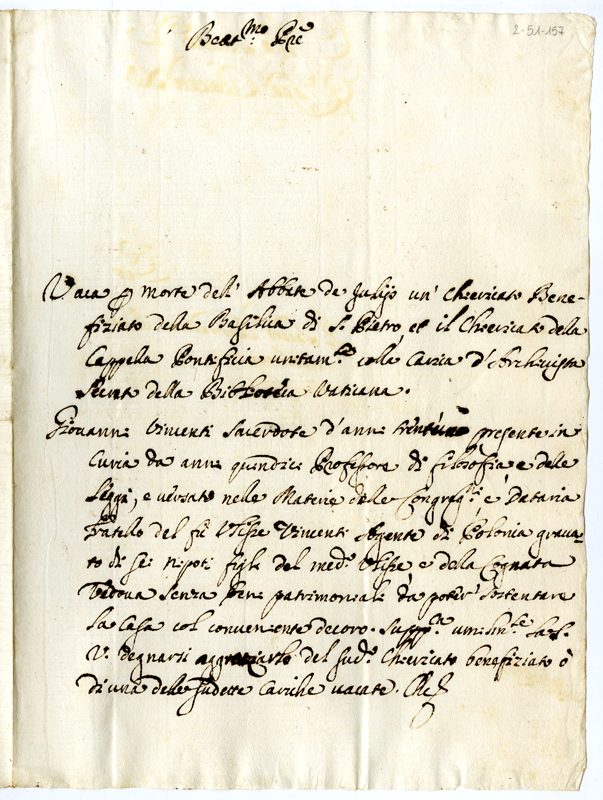 2-51-157
Beat.mo Pre
Vaca p morte dell' Abbate de Julijs un' Chiericato Bene-
fiziato della Basilica di S. Pietro, et il Chiericato della
Cappella Pontificia unitam.te colla Carica d'Archivista
Secreto della Biblioteca Vaticana.
Giovanni Vincenti Sacerdote d'anni trentuno presente in
Curia da anni quindici Professore di filosofia e delle
Leggi, e versato nelle Materie delle Congreg.ni e Dataria
Fratello del fù Ulisse Vincenti Agente di Polonia grava-
to di sei nipoti figli del med.o Ulisse e della Cognata
Vedova senza beni patrimoniali da poter sostentare
la Casa col conveniente decoro. Supp.ca umilm.te la S.
V. degnarsi aggraziarlo del sud.o Chiericato benefiziato ò
di una delle sudette Cariche vacate. Che